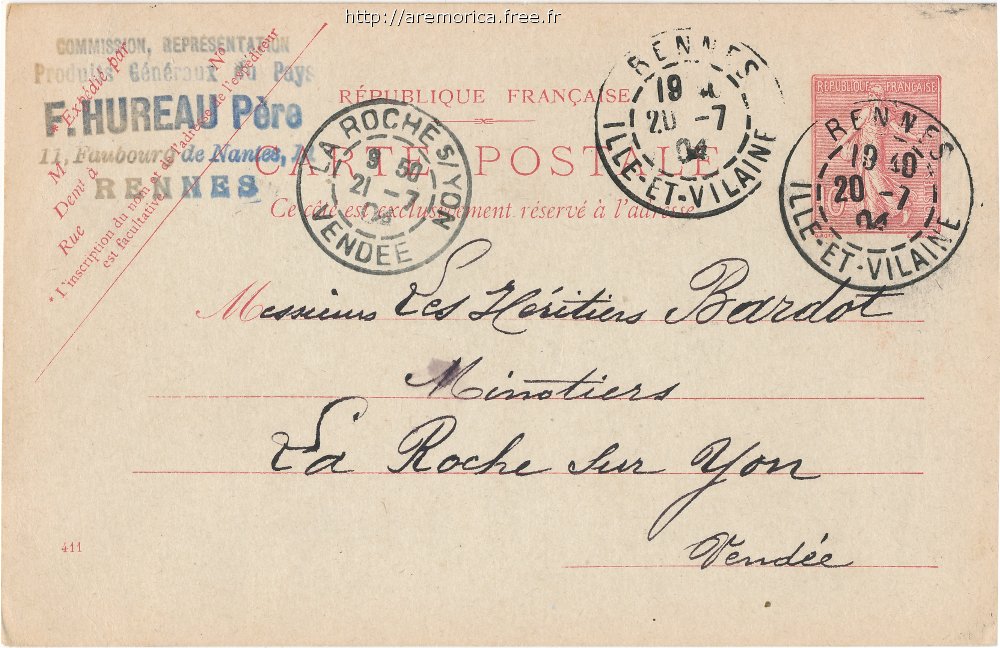 http://aremorica.free.fr
COMMISSION, REPRÉSENTATION
Produits Généraux du Pays
F. HUREAU Père
11, Faubourg de Nantes, 11
RENNES
* Expédié par
M
Demt à
Rue
No
* L'inscription du nom et de l'adresse de l'expéditeur
est facultative.
RÉPUBLIQUE FRANÇAISE
CARTE POSTALE
Ce côté est exclusivement réservé à l'adresse.
LA ROCHE S/YON
9 50
21 -7
04
VENDÉE
RENNES
19 40
20 -7
04
ILLE-ET-VILAINE
RÉPUBLIQUE FRANÇAISE
RENNES
19 40
20 -7
04
ILLE-ET-VILAINE
Messieurs Les Héritiers Bardot
Minotiers
La Roche sur Yon
Vendée
411